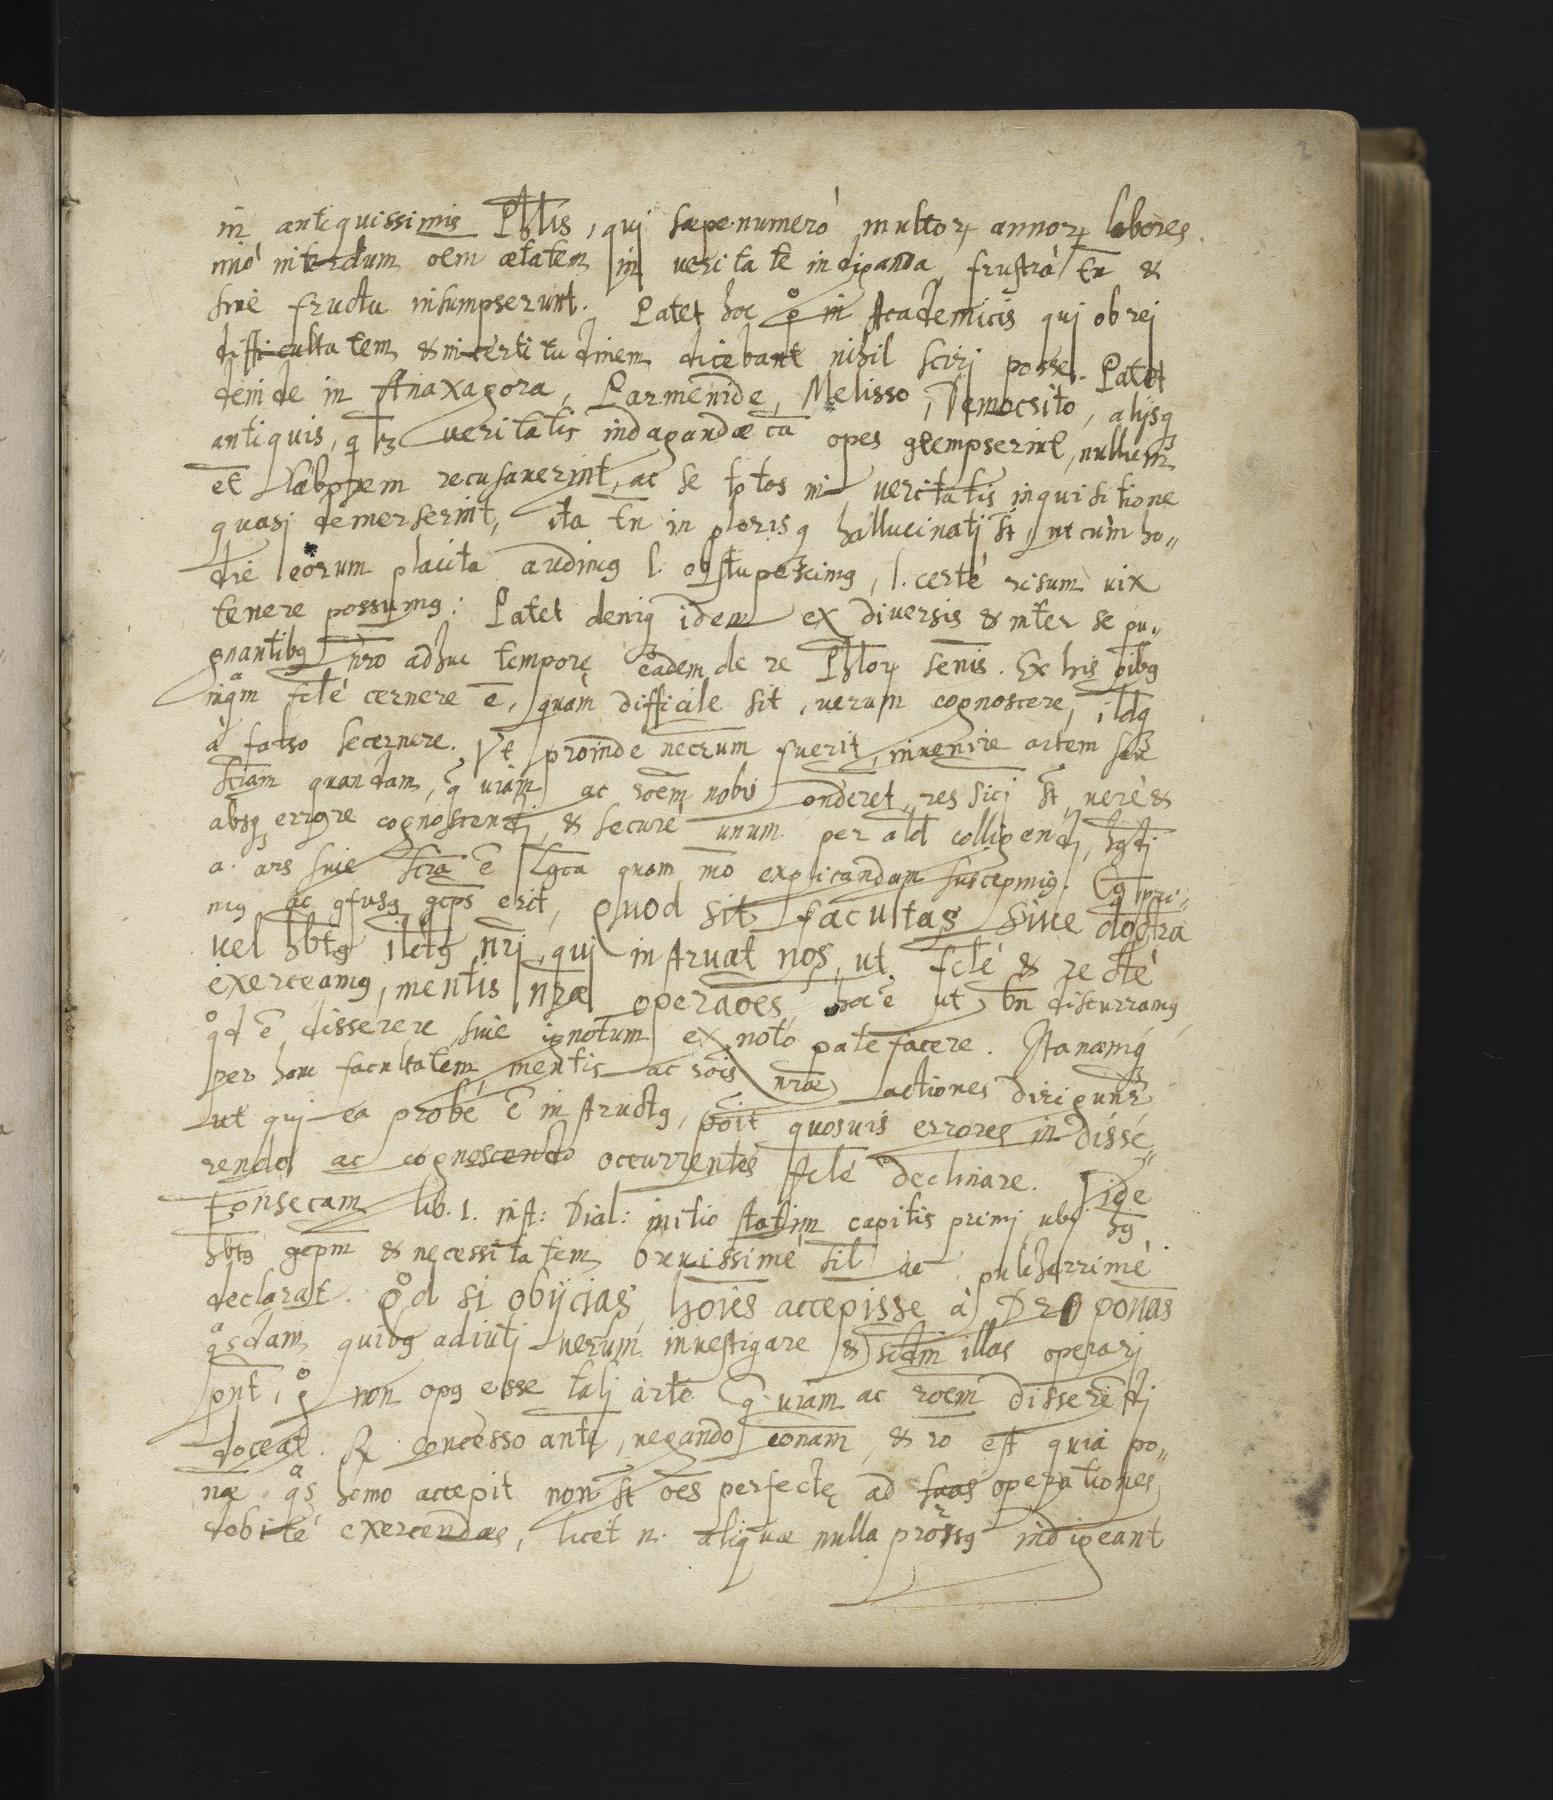 in antiquissimis Phlis, qui sæpenumerò multorꝝ annorꝝ labores
imò interdum oēm ætatem in veritate indiganda frustrà tn̄ &
sine fructu insumpserunt. Patet hoc pº in Academicis qui ob rei
difficultatem & incertitudinem dicebant nihil sciri posse. Patet
deinde in Anaxagora, Parmenide, Melisso, Democrito, alijsq3
antiquis, veritatis indagandæ cā opes gtempserint, nullum
et laborem recusaverint, ac se totos in veritatis inquisitione
quasi demerserint, ita tn̄ in plerisq hallucinati st̄, ut cùm ho„
die eorum placita audimꝰ l. obstupescimꝰ, l. certè risum vix
tenere possumꝰ: Patet deniq3 idem ex diversis & inter se pu„
gnantibꝰ nr̄o adhuc temporę eâdem de re Phlorꝝ senīs. Ex his oībꝰ
inqᵃm fclè cernere ē, quàm difficile sit, verum cognoscere, ildq3
à falso secernere. Vt proinde necrum fuerit, invenire artem seu
scīam quandam, q̄ viam ac roēm nobis onderet, res sicj st̄, verè &
absq3 errore cognoscendi, & securè unum per ald colligendi, hꝰdj
a. ars sive scīa ē Lgca quam mō explicandam suscepimꝰ. Cꝰ pri„
mꝰ ac gfusꝰ gcps erit, Quod sit facultas sive doctra
vel hbtꝰ illctꝰ nrī, qui instruat nos, ut fclè & rectè
exerceamꝰ, mentis nræ operaōes, hoc ē ut bn̄ discurramꝰ
qºd ē disserere sive ignotum ex noto patefacere. Itanamq3
per hanc facultatem mentis ac roīs nræ actiones dirigunr̄
ut qui ea probè ē instructꝰ, poīt quosvis errores in disse„
rendo ac cognoscendo occurrentes fclè declinare. Vide
Fonsecam lib. 1. inst: Dial: initio statim capitis primi, ubi hꝰ
hbtꝰ gcpm & necessitatem brevissimè sil ac pulcherrimè
declarat. Qºd si obijcias, hoīes accepisse à DEO ponās
qᵃsdam quibꝰ adiuti verum investigare & scdm illas operari
pnt, qº non opꝰ esse tali arte q̄ viam ac roēm disserēdi
doceat. R. concesso antę, negando conam, & ro est quia po„
næ qᵃs homo accepit non st̄ oēs perfectę ad suas operationes
debitè exercendas, licet n. aliquæ nulla prorsꝰ indigeant